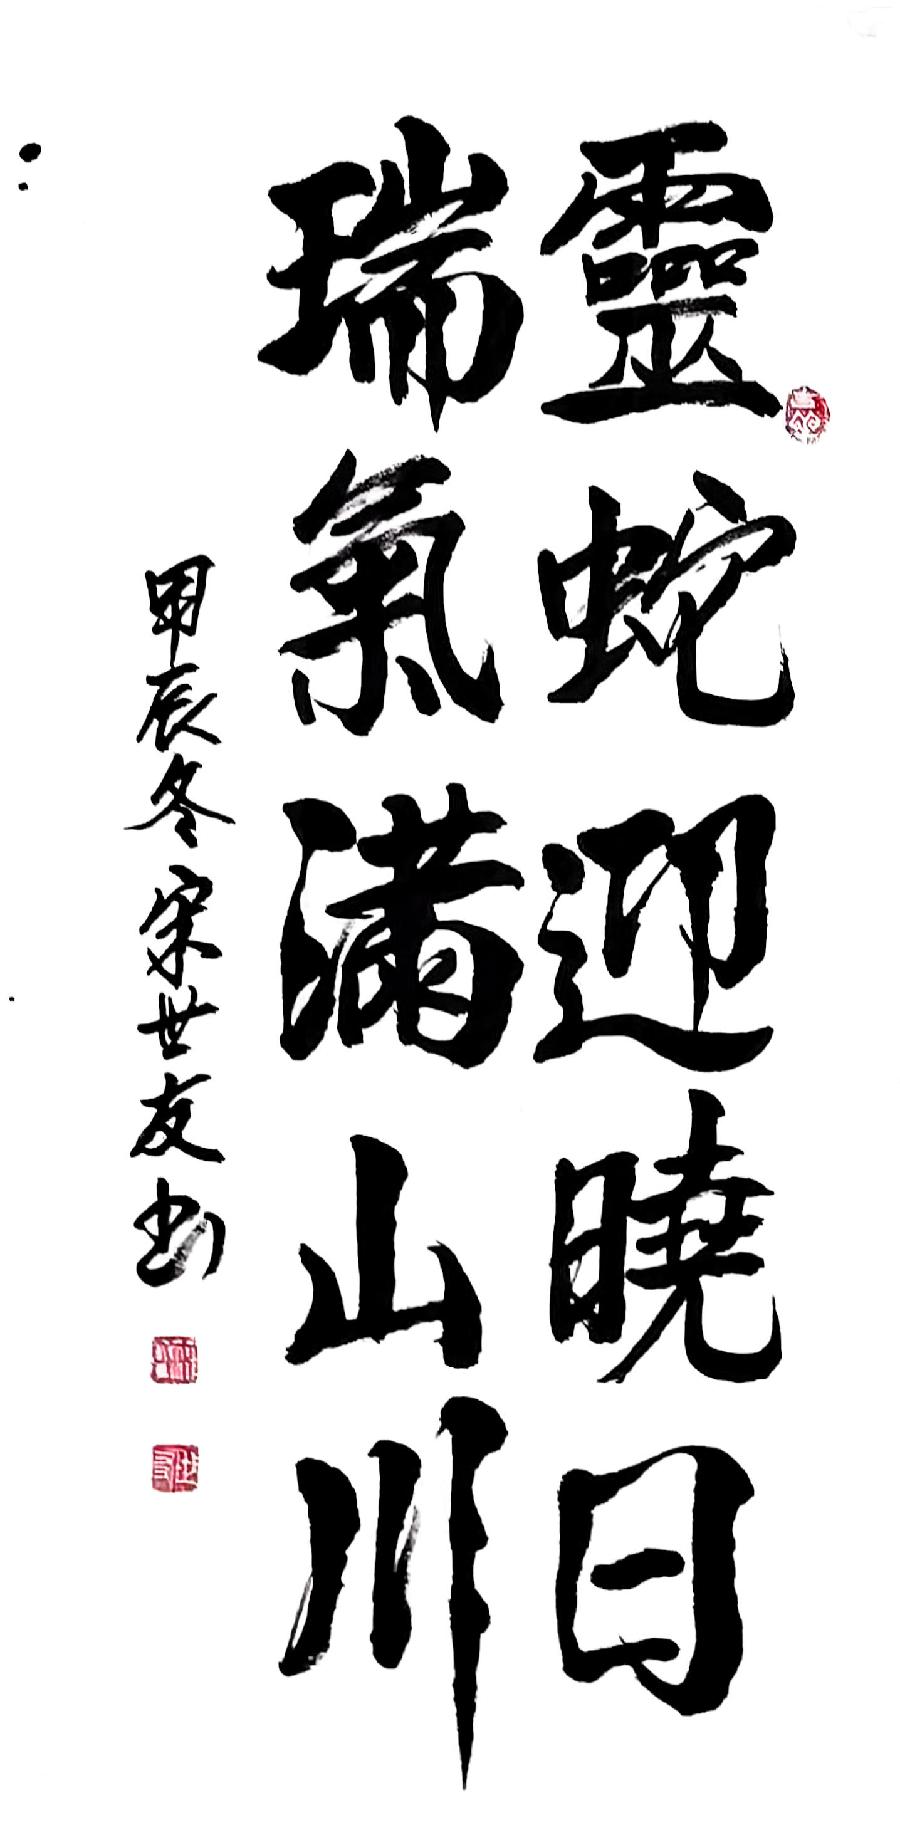 靈蛇迎曉日
瑞氣滿山川
甲辰冬宋世友书